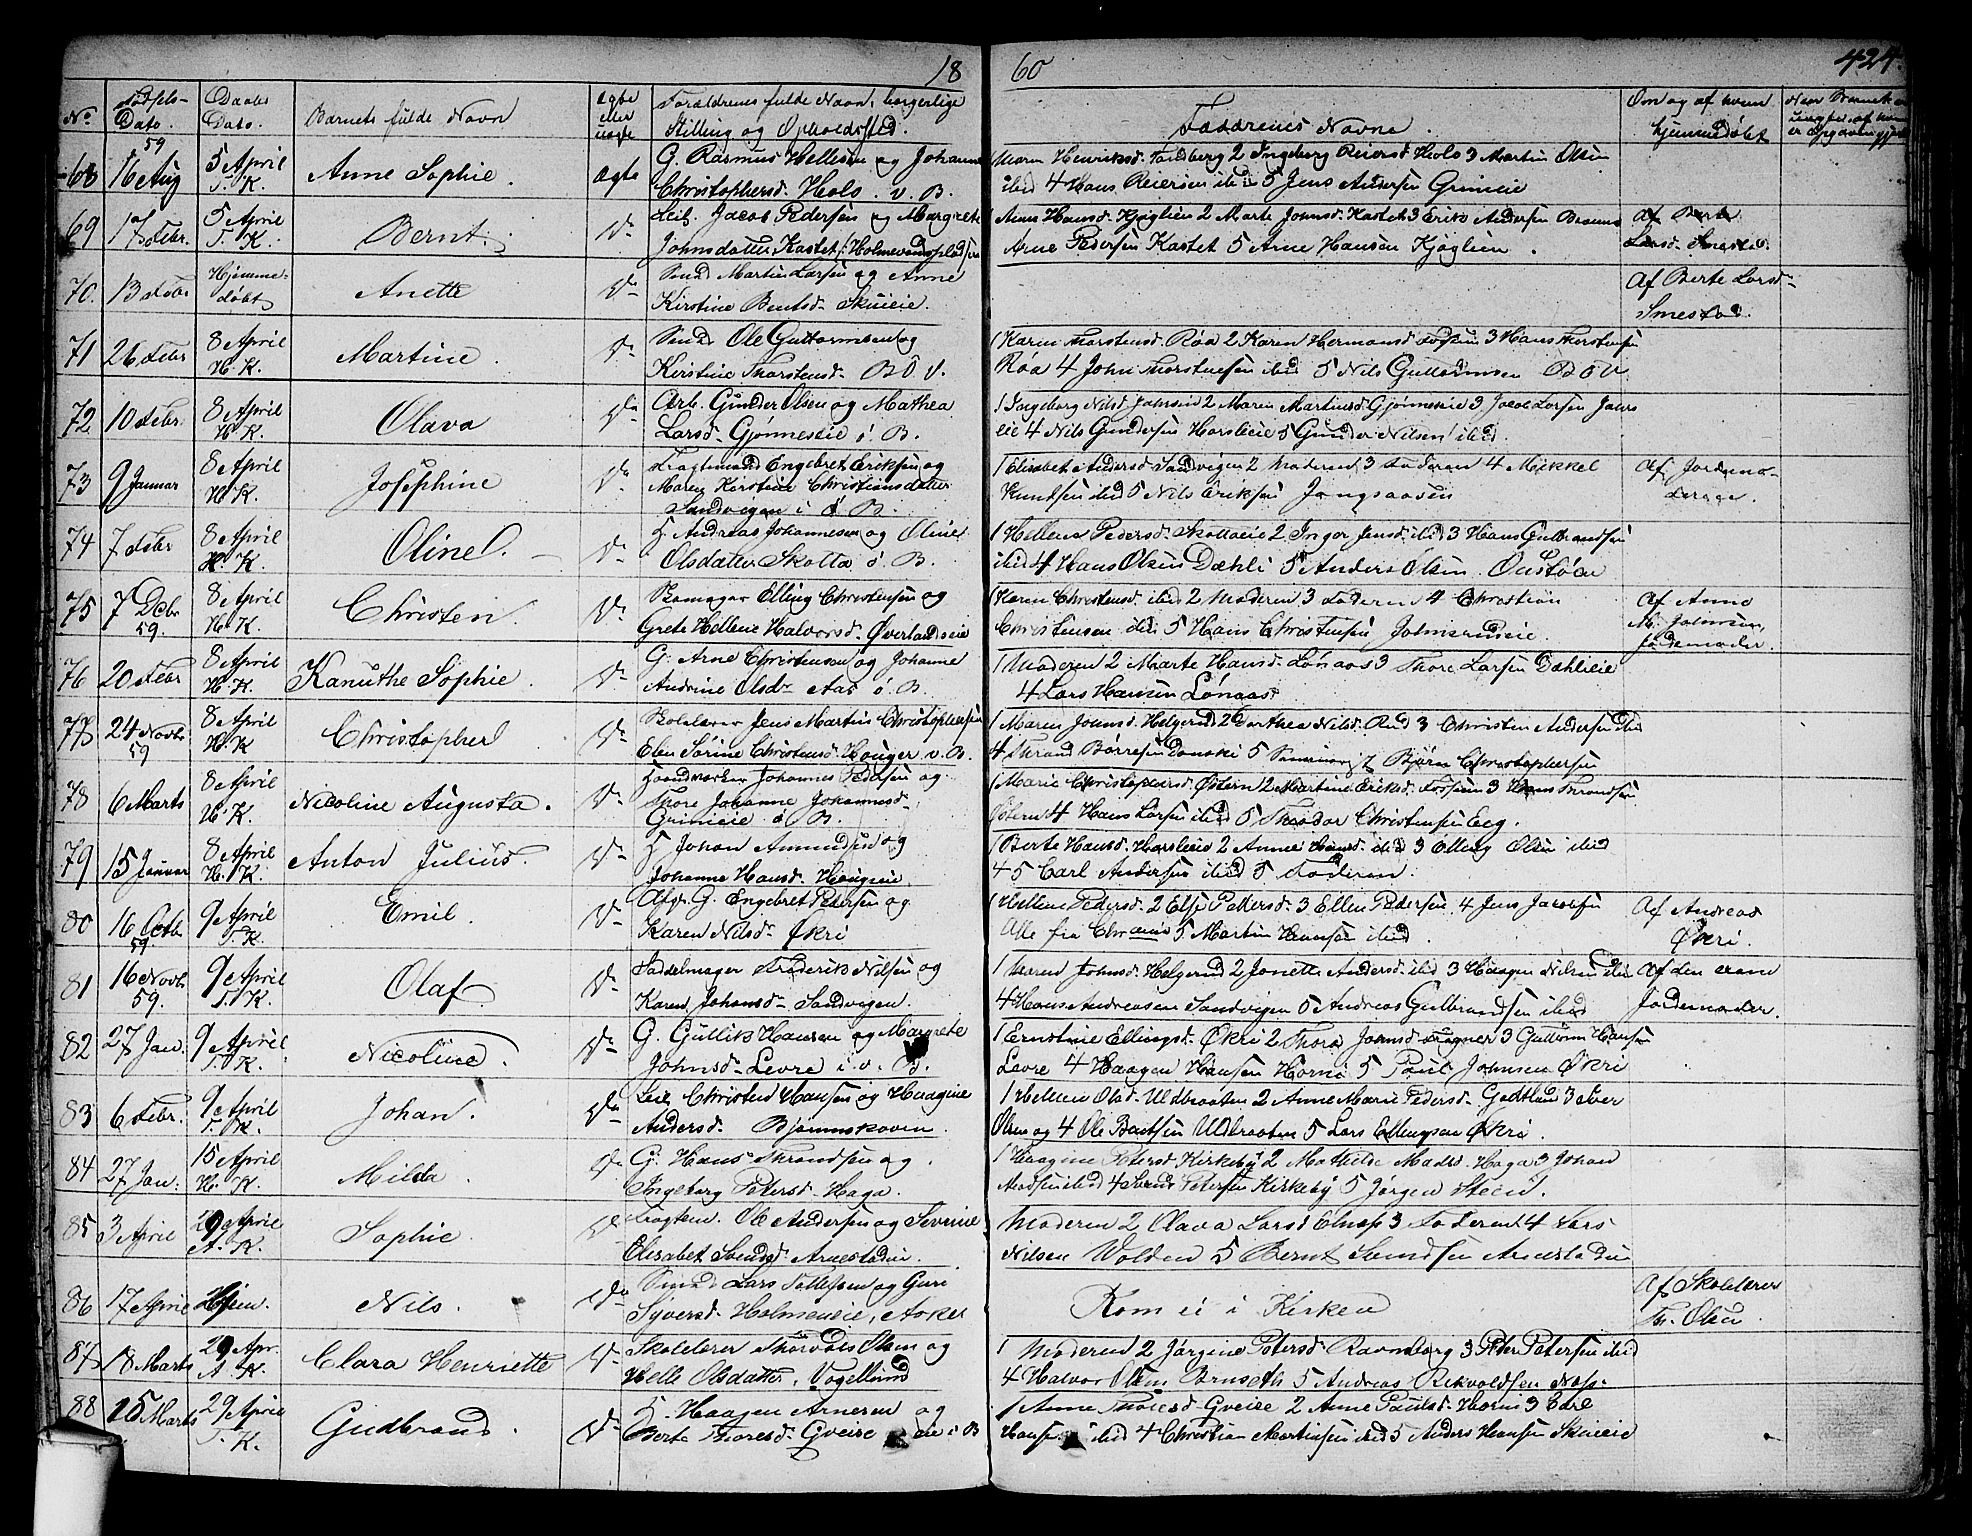 18 60 424.
No. Fødsels- Dato. Daabs Dato. Barnets fulde Navn Ægte eller uægte Forældrenes fulde Navn, borgerlige Stilling og Opholdssted. Faddrenes Navne. Om og af hvem hjemmedøbt
68 16 Aug 59 5 April T. K. Anne Sophie. Ægte G. Rasmus Hellesen og Johanne
Christophersd. Hols. v. B.
1 Maren Henriksd. Tandberg 2 Ingeborg Reiersd Hols 3 Martin Olsen
ibid 4 Hans Reiersen ibid 5 Jens Andersen Grinieie
69 17 Febr. 5 April T. K. Bernt. Do Leil. Jacob Pedersen og Margrete
Johnsdatter Kastet, Holmeneiepladsen
1 Anne Hansd. Kjøglien 2 Marte Johnsd. Kastet 3 Erik Andersen
Arne Pedersen Kastet 5 Arne Hansen Kjøglien.
Af Berte
Larsd. Smestad.
70. 13 Febr Hjemme-døbt Anette Do Smed Martin Larsen og Anne
Kirstine Bentsd. Skuieie.
Af Berte Larsd-
Smestad.
71 26 Febr 8 April H. K. Martine. Do Smed Ole Guttormsen og
Kirstine Thorstensd. B Ö V.
1 Karen Thorstensd. Røa 2 Karen Hermansd Fossen 3 Hans Thorstensen
Røa 4 John Thorstensen ibid 5 Nils Guttormsen B Ö V
72 10 Febr. 8 April H. K. Olava Do Arb. Gunder Olsen og Mathea
Larsd. Gjønneseie ö. B.
1 Ingeborg Nilsd 2 Maren Martinsd Gjønneseie 3 Jacob Larsen
eie 4 Nils Gundersen Horslieie 5 Gunder Nilsen ibid.
73 9 Januar 8 April H. K. Josephine Do Fragtemand Engebret Eriksen og
Maren Kirstine Christiansdatter
Sandvigen i ö B.
1 Elisabet Andersd. Sandvigen 2 Moderen 3 Faderen 4 Mikkel
Knudsen ibid 5 Nils Eriksen Jongsaasen
Af Jordemo-
74 7 Febr 8 April H. K. Oline. Do H Andreas Johannesen og Oline
Olsdatter Skotta ö. B.
1 Hellene Pedersd. Skottaeie 2 Inger Jensd. ibid 3 Hans Gulbrandsen
ibid 4 Hans Olsen Dæhli 5 Anders Olsen Oustøen
75 7 Debr 59. 8 April H. K. Christen. Do Skomager Elling Christensen og
Grete Hellene Halvorsd. Øverlandseie
1 Karen Christensd. ibid 2 Moderen 3 Faderen 4 Christian
Christensen ibid 5 Hans Christensen
Af Anne
M. Johnsen,
Jordemoder.
76 20 Febr 8 April H. K. Kanuthe Sophie. Do G. Arne Christensen og Johanne
Andrine Olsdr Aas ö. B.
1 Moderen 2 Marte Hansd. Lønaas 3 Thore Larsen Dæhlieie
4 Lars Hansen Lønaas
77 24 Novbr 59 8 April H K Christopher Do Skolelærer Jens Martin Christophersen
Elen Sørine Christensd. Houger v. B.
1 Maren Johnsd. Helgerud 2 Dorthea Nilsd. Rud 3 Christen Andersen ibid
4 Thrand Børresen Danske 5 Seminarist Bjørn Christophersen
78 6 Marts 8 April H. K. Nicoline Augusta. Do Haandværker Johannes Pedersen og
Thore Johanne Johannesd-
Grinieie ö B.
1 Marie Christophersd. Østern 2 Martine Eriksd. Fossum 3 Hans Thrandsen
Østern 4 Hans Larsen ibid 5 Theodor Christensen Eeg.
79 15 Januar 8 April H. K. Anton Julius. Do H Johan Amundsen og
Johanne Hansd. Haugeie
1 Berte Hansd. Horslieie 2 Anne Hansd. ibid 3 Elling Olsen ibid
4 5 Carl Andersen ibid 5 Faderen.
80 16 Octbr 59 9 April T. K. Emil. Do Afgr. G. Engebret Pedersen og
Karen Nilsd. Økri
1 Hellene Pedersd. 2 Elise Pettersd. 3 Ellen Pedersen 4 Jens Jacobsen
Alle fra Chraneie 5 Martin Hansen ibid
Af Andreas
Økri.
81 16 Novbr 59. 9 April T. K. Olaf. Do Saddelmager Frederik Nilsen og
Karen Johansd. Sandvigen.
1 Maren Johnsd. Helgerud 2 Jonette Andersd. ibid 3 Haagen Nilsen ibid
4 Hans Andreasen Sandvigen 5 Andreas Gulbrandsen ibid
Af den
Jordemoder.
82 27 Jan. 9 April T. K. Nicoline. Do G. Gullik Hansen og Margrete
Johnsd. Levre i v. B.
1 Ernstine Ellingsd. Økri 2 Thora Johnsd. 3 Guttorm Hansen
Levre 4 Haagen Hansen Horni 5 Paul Johnsen Økri
83 6 Febr. 9 April T. K. Johan. Do Leil. Christen Hansen og Haagine
Andersd. Bjørumskoven.
1 Hellene Olsd. Udbraaten 2 Anne Marie Pedersd. 3 Iver
Olsen og 4 Ole Bentsen Udbraaten 5 Lars Ellingsen Økri.
84 27 Jan. 15 April H. K. Milda. Do G. Hans Thrandsen og
Ingeborg Petersd. Haga.
1 Haagine Petersd Kirkeby 2 Mathilde Madsd. Haga 3 Johan
Madsen ibid 4 Petersen Kirkeby 5 Jørgen Steen.
85 3 April 29 April A. K. Sophie. Do Fragtem. Ole Andersen og Severine
Elisabet Arnestaden.
Moderen 2 Olava Larsd 3 Faderen 4 Lars
Nilsen Volden 5 Bernt Arnestaden
86 17 April Hjem. Nils. Do Smed Lars Tollefsen og Guri
Syversd. Holmeneie, Asker
Kom ei i Kirken
Af Skolelærer
Th. Olsen.
87 18 Marts 29 Apr. A. K. Clara Henriette Do Skolelærer Thorvald Olsen og
Helle Olsdatter, Vogellund
1 Moderen 2 Jørgine Petersd. Ravnsborg 3 Peder Petersen ibid
4 Halvor Olsen Bruseth 5 Andreas
88 25 Marts 29 April T. K. Gudbrand. Do H. Haagen Arnesen og
Berte Thoresd. Gveise eie i B
1 Anne Thoresd Gveise 2 Anne Paulsd. Horni 3 Edel
Hansen ibid 4 Christian Martinsen ibid 5 Anders Hansen Skuieie